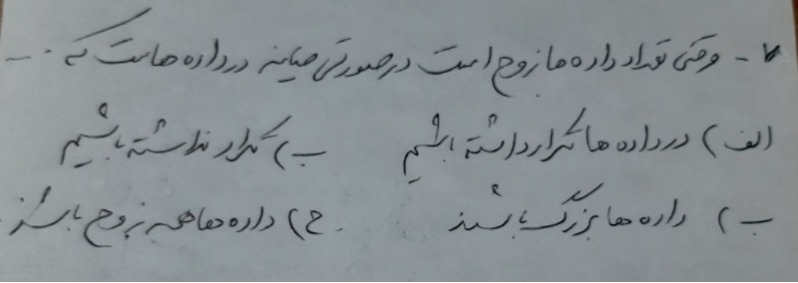 ۷- وقتی تعداد داده ها زوج است در صورتی میانه در داده هاست که ...
الف) در داده ها تکرار داشته باشیم ب) تکرار نداشته باشیم
ب) داده ها بزرگ باشند ج) داده ها همه زوج باشند.